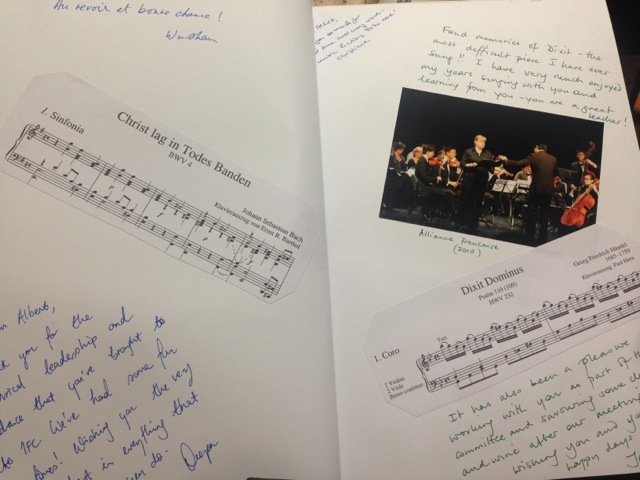 Au revoir et bonne chance !
1. Sinfonia
Christ lag in Todes Banden
BWV 4
Johann Sebastian Bach
Klavierauszug von Ernst R.
Albert,
you for the
leadership and
that you've brought to
We've had some fun
Wishing you the very
in everything that
do. Deepa
Fond memories of Dixit - the
most difficult piece I have ever
sung!! I have very much enjoyed
my years singing with you and
learning from you - you are a great
teacher!
Alliance Francaise
(2010)
Dixit Dominus
Psalm 110 (109)
HWV 232
Georg Friedrich Händel
1685-1759
Klavierauszug: Paul Horn
1. Coro
Tutti
2 Violini
2 Viole
Basso continuo
It has also been a pleasure
working with you as part of the
committee and savouring some
and wine after our meeting
wishing you and
happy days